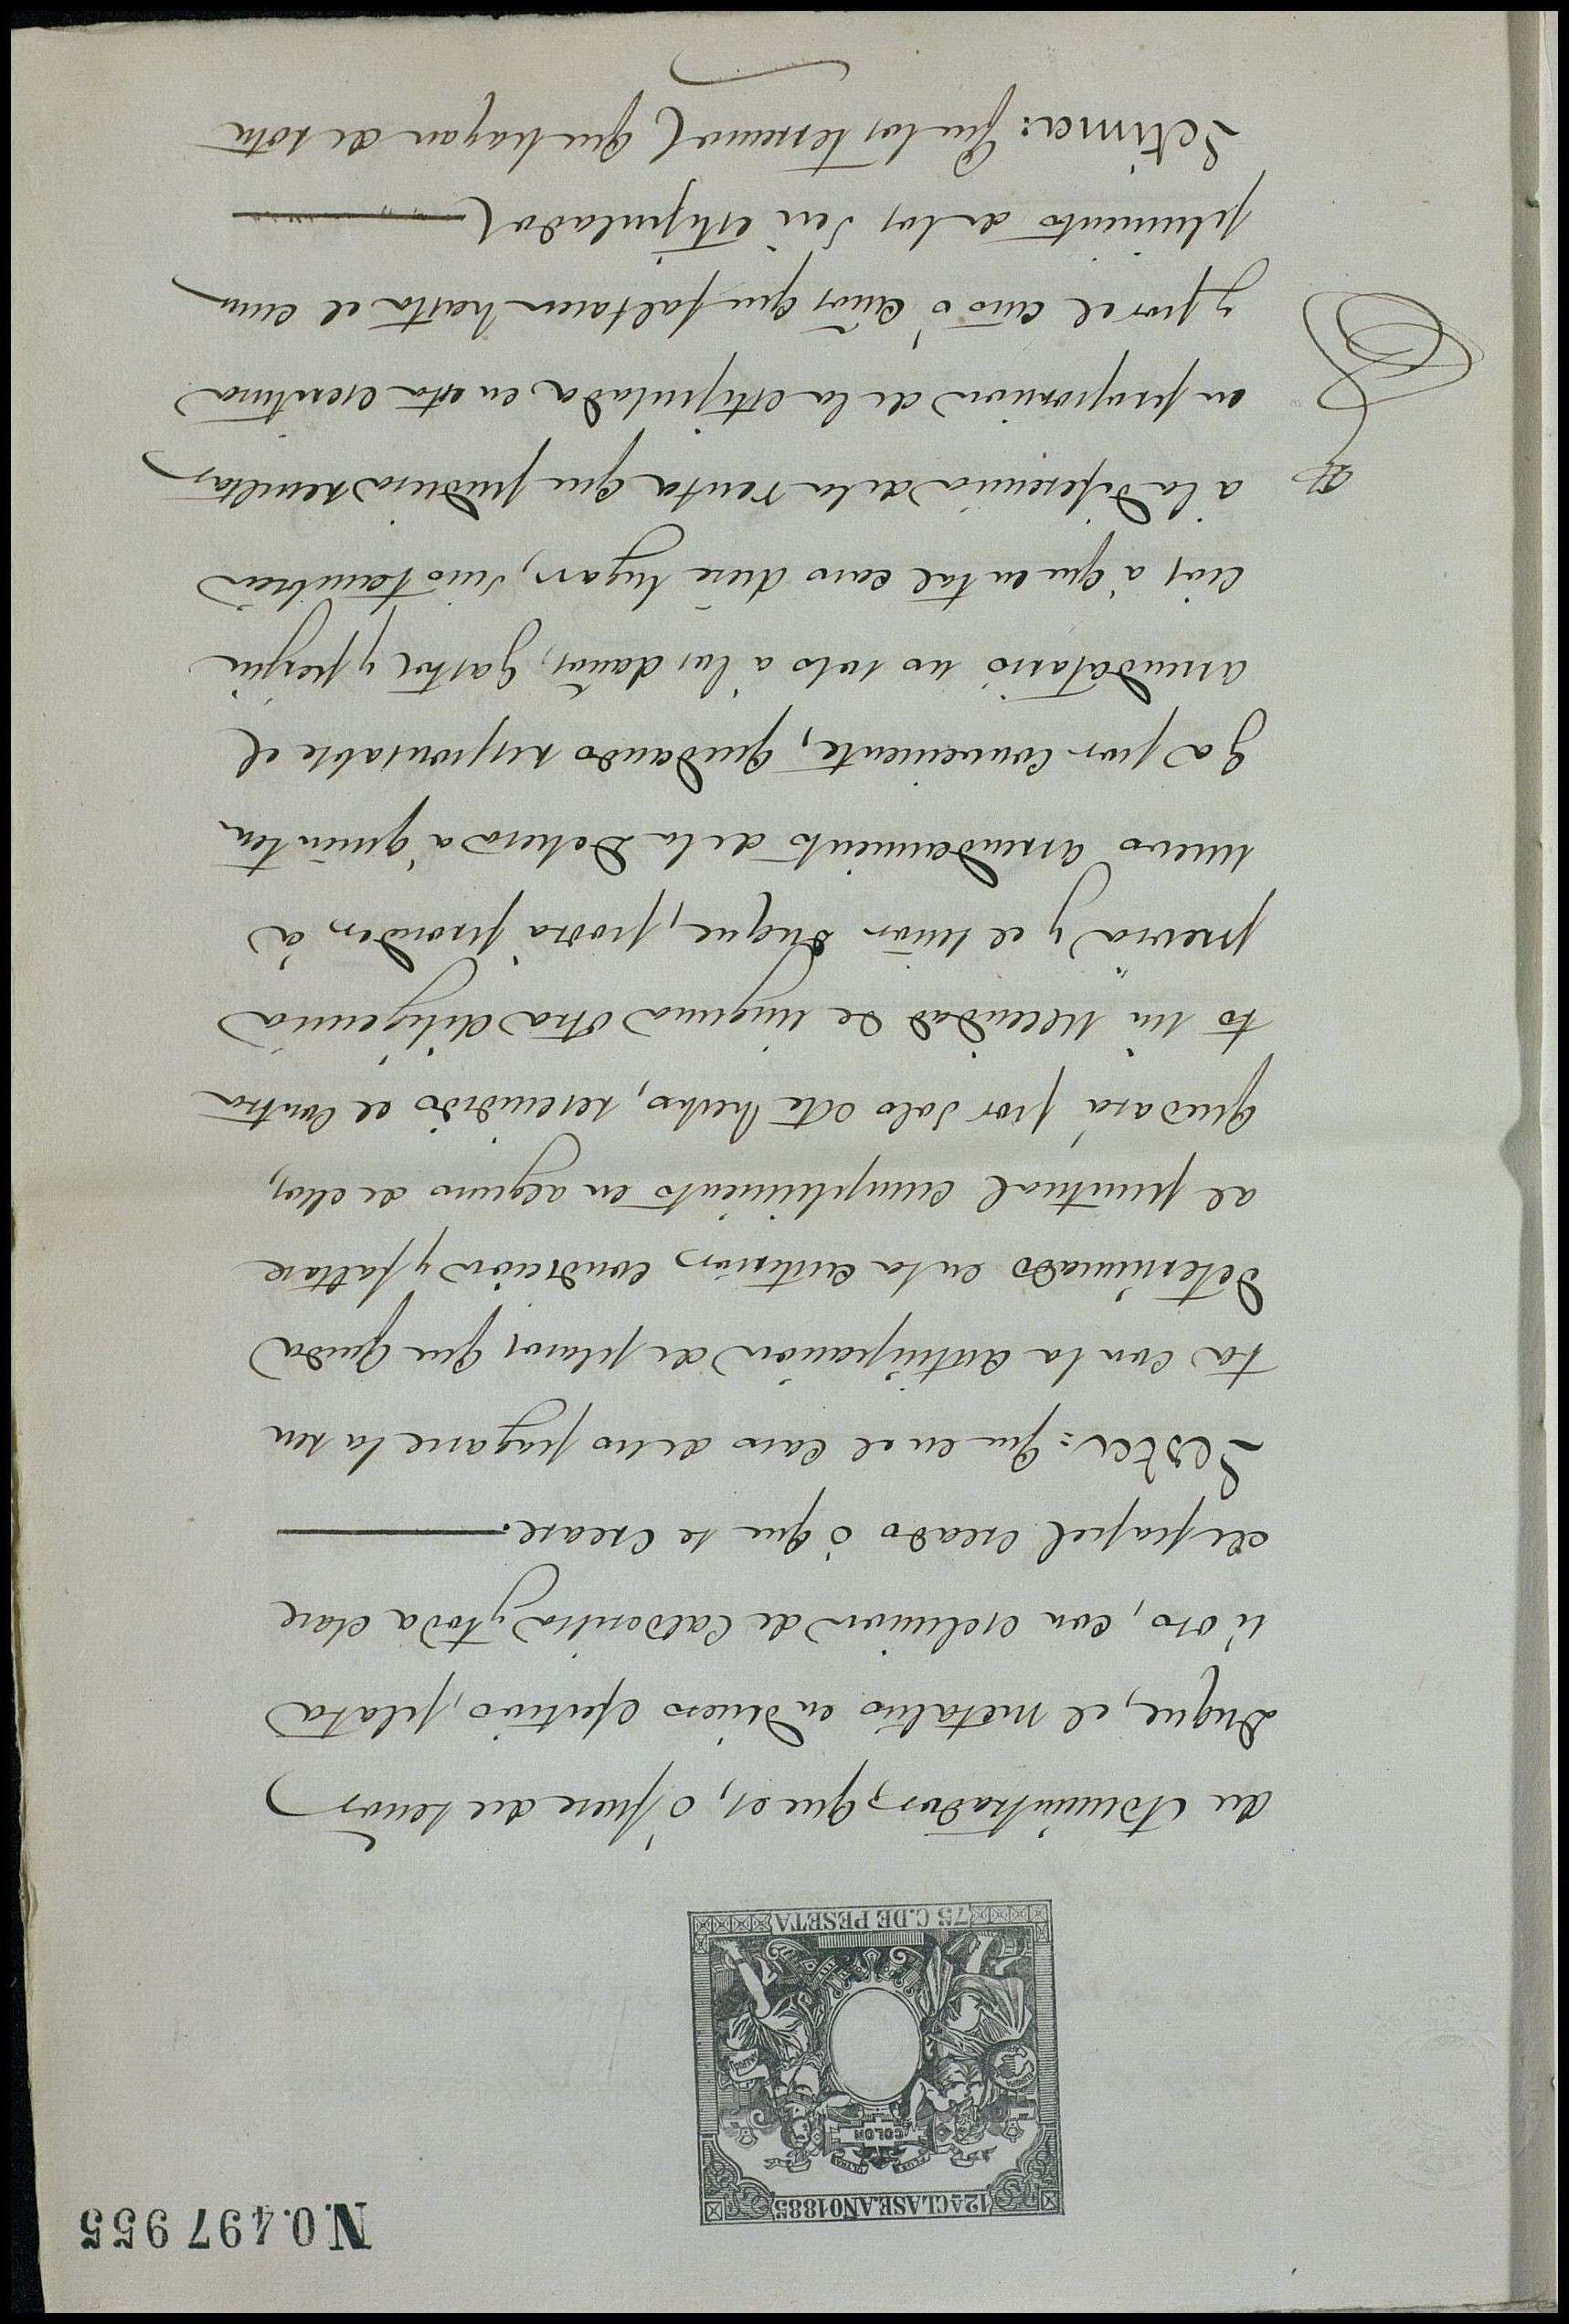 N.0.497955
12ª CLASE. AÑO 1885
PLUS ULTRA
COLON
75 C. DE PESETA
du Administrador, que es, ó fuere du señor
Duque, el metalico en dinero efectivo, plata
ú oro, con esclusion de Calderilla y toda clase
de papel creado ó que se crease.
Sesta: Que en el caso de no pagarse la ren
ta con la anticipacion de plazos que queda
determinado en la anterior condicion y faltase
al puntual cumplimiento en alguno de ellos,
quedará por solo este hecho, rescindido el Contra
to sin necesidad de ninguna otra diligencia
previa y el señor Duque, podrá proceder á
nuevo arrendamiento de la Dehesa á quien ten
ga por conveniente, quedando responsable el
arrendatario no solo á los daños, gastos y perjui
cios á que en tal caso diere lugar, sino tambien
á la diferencia de la renta que pudiera resultar
en proporcion de la estipulada en esta escritura
y por el año ó años que faltasen hasta el cum
plimiento de los seis estipulados
Setima: Que los terrenos que hayan de rotu